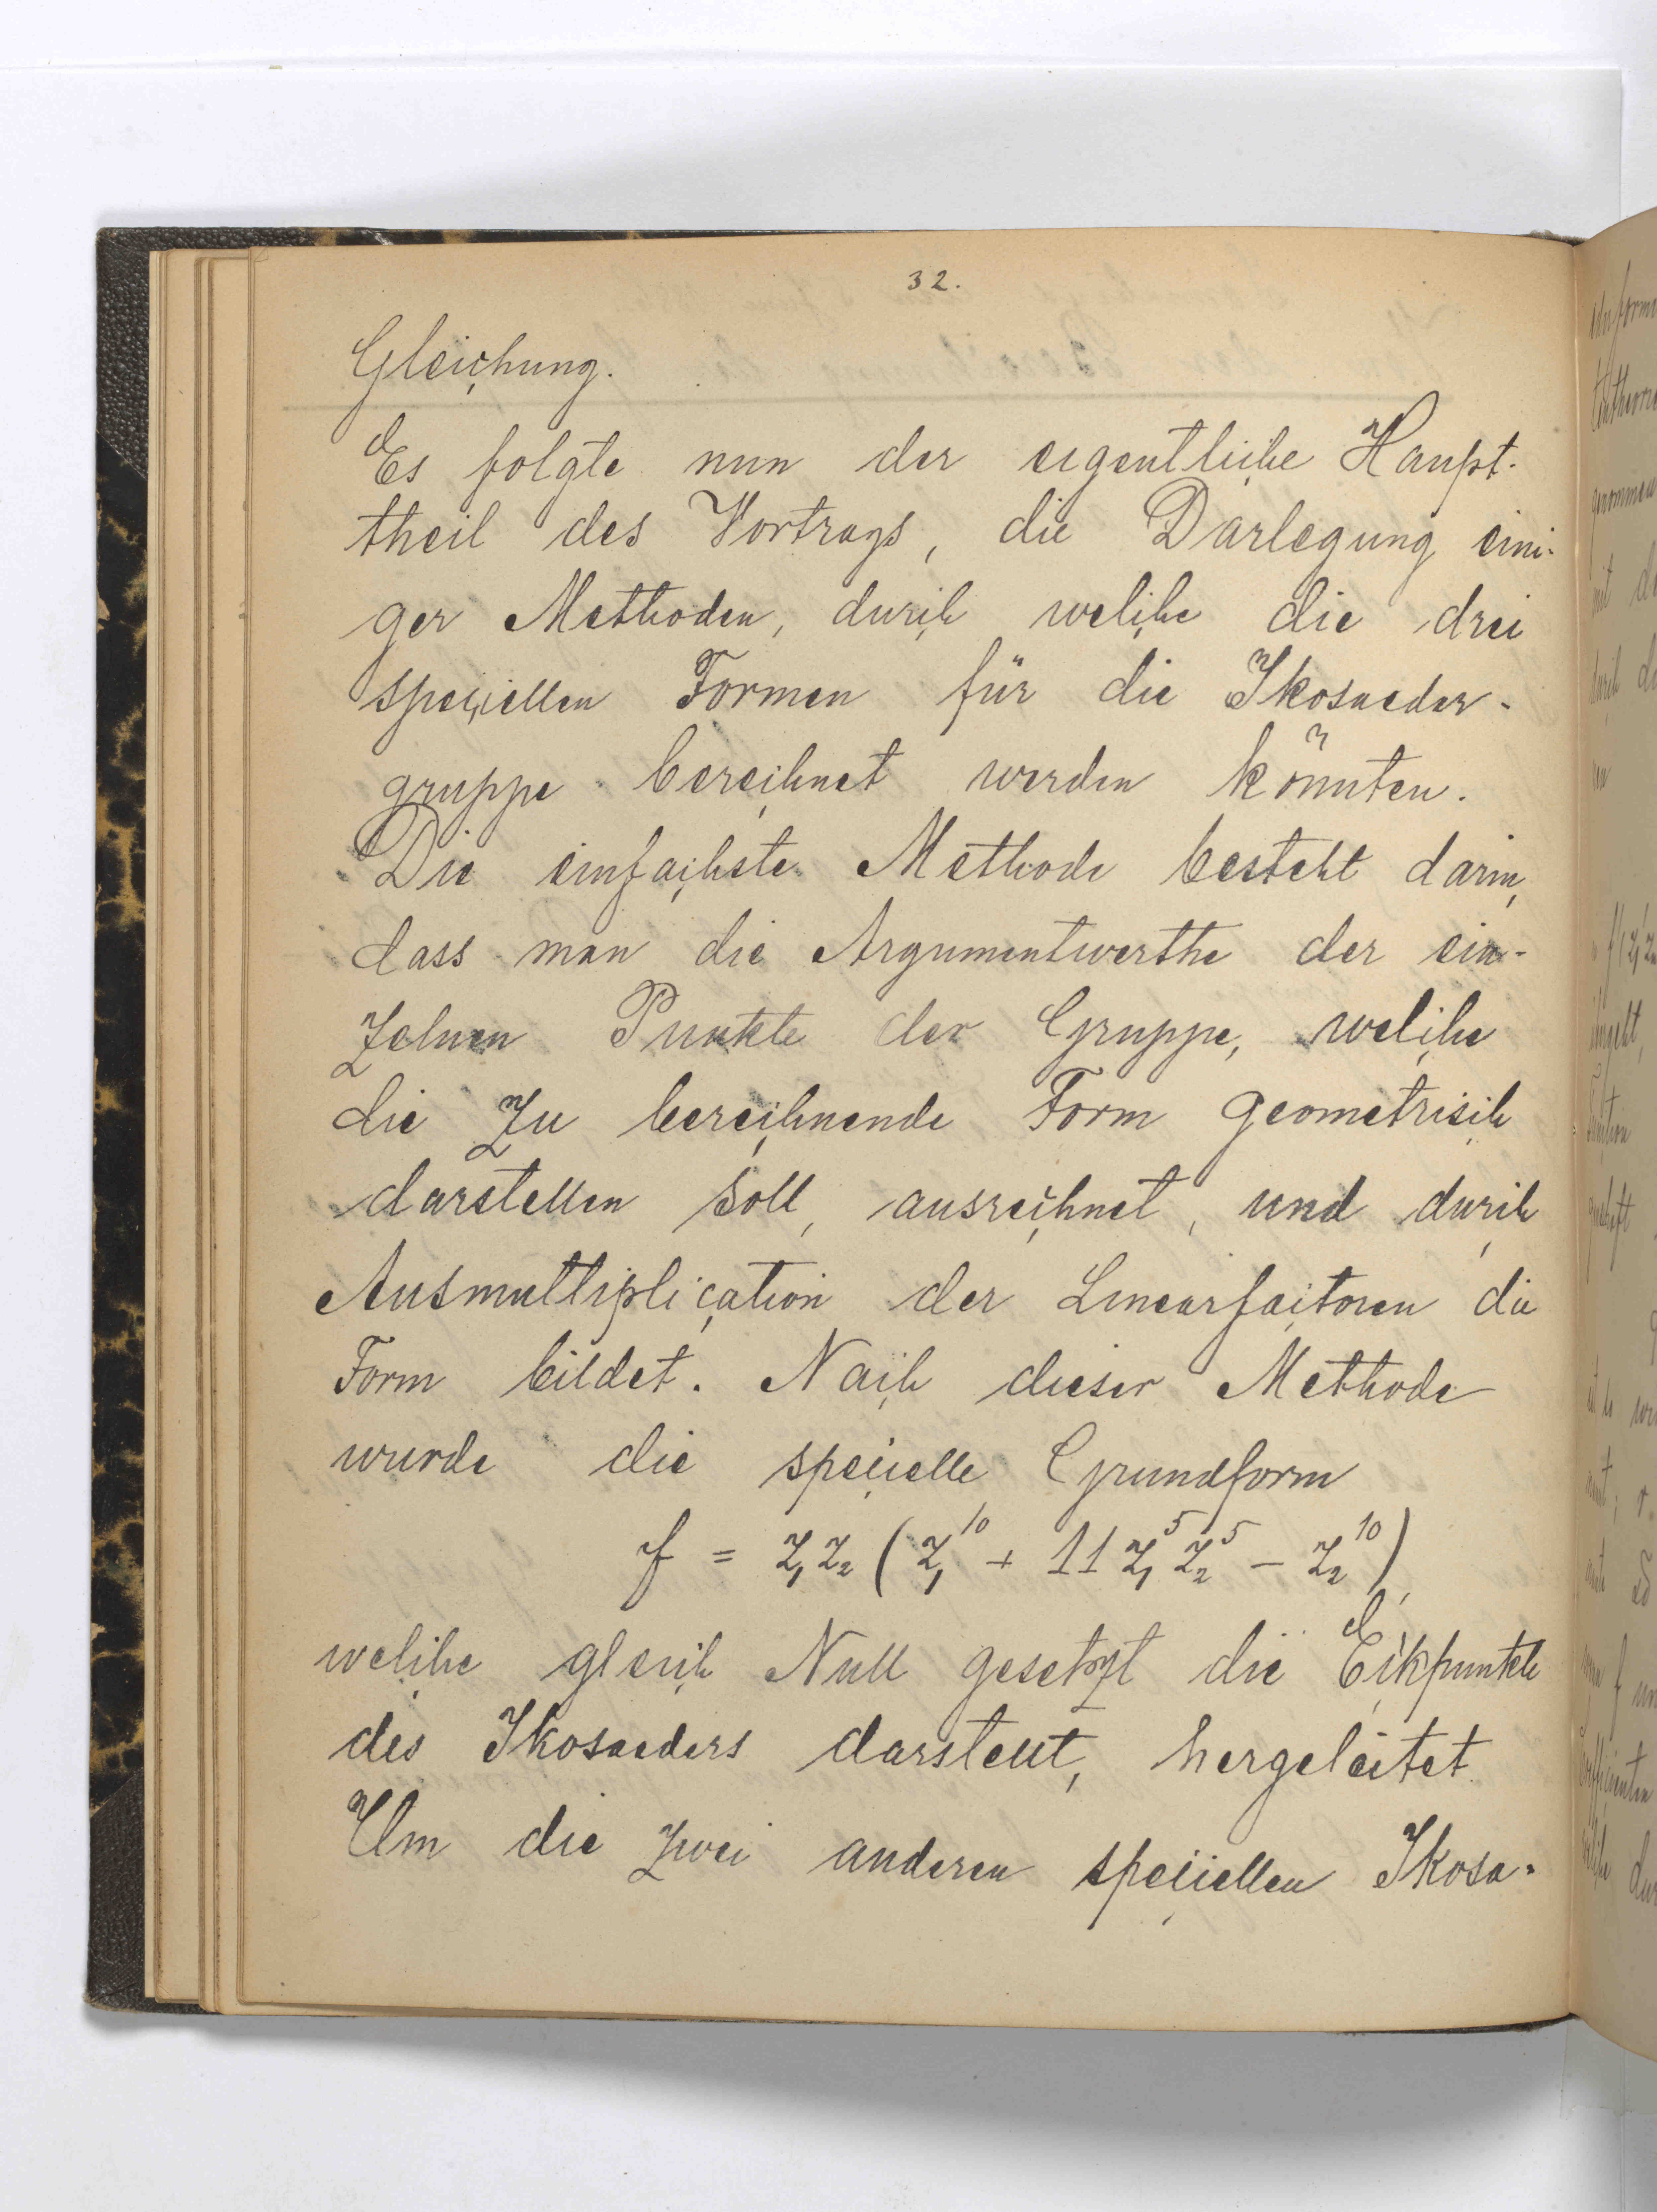 32.
Gleichung.
Es folgte nun der eigentliche Haupt-
theil des Vortrags, die Darlegung eini-
ger Methoden, durch welche die drei
speciellen Formen für die Ikosaeder-
gruppe berechnet werden könnten.
Die einfachste Methode besteht darin,
dass man die Argumentwerthe der ein-
zelnen Punkte der Gruppe, welche
die zu berechnende Form geometrisch
darstellen soll, ausrechnet, und durch
Ausmultiplication der Linearfactoren die
Form bildet. Nach dieser Methode
wurde die specielle Grundform
f = z₁z₂ (z₁¹⁰ + 11 z₁⁵ z₂⁵ − z₂¹⁰),
welche gleich Null gesetzt die Eckpunkte
des Ikosaeders darstellt, hergeleitet.
Um die zwei anderen speciellen Ikosa-